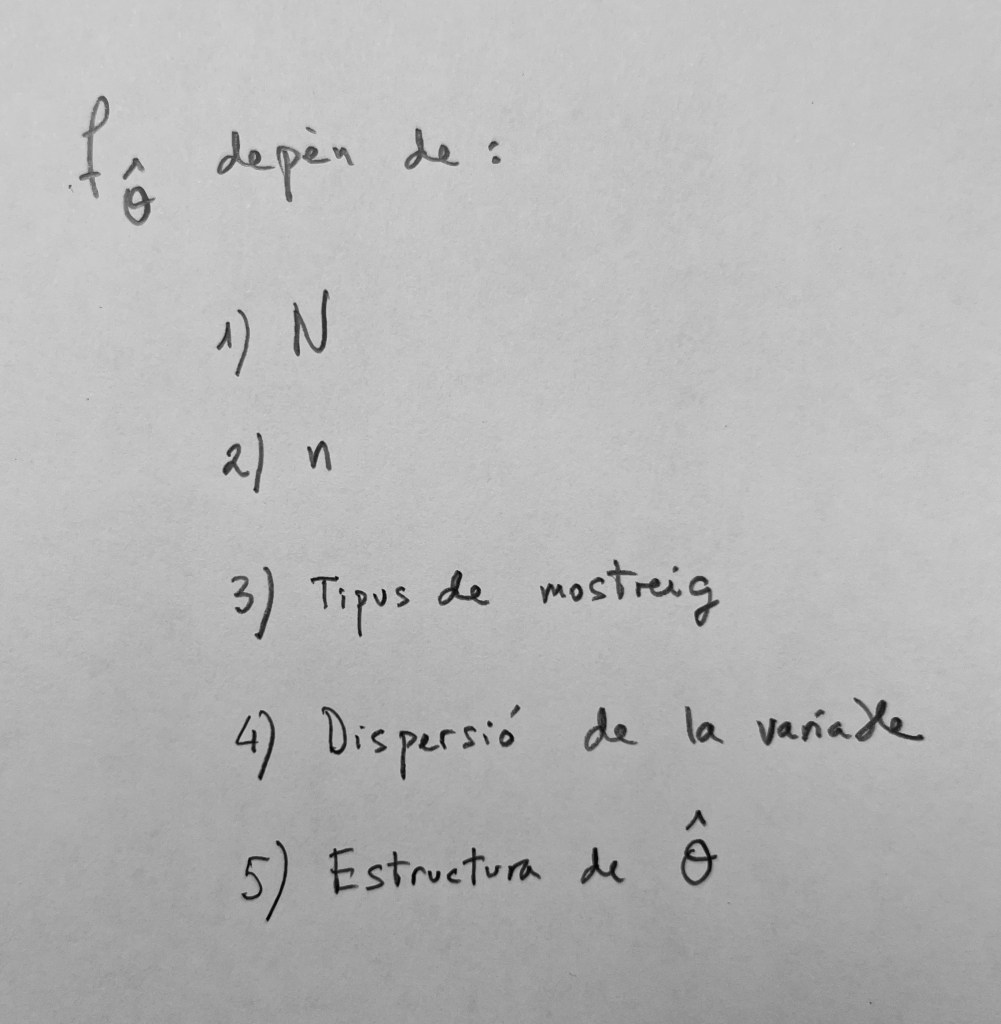 f_θ̂ depèn de :
1) N
2) n
3) Tipus de mostreig
4) Dispersió de la variable
5) Estructura de θ̂